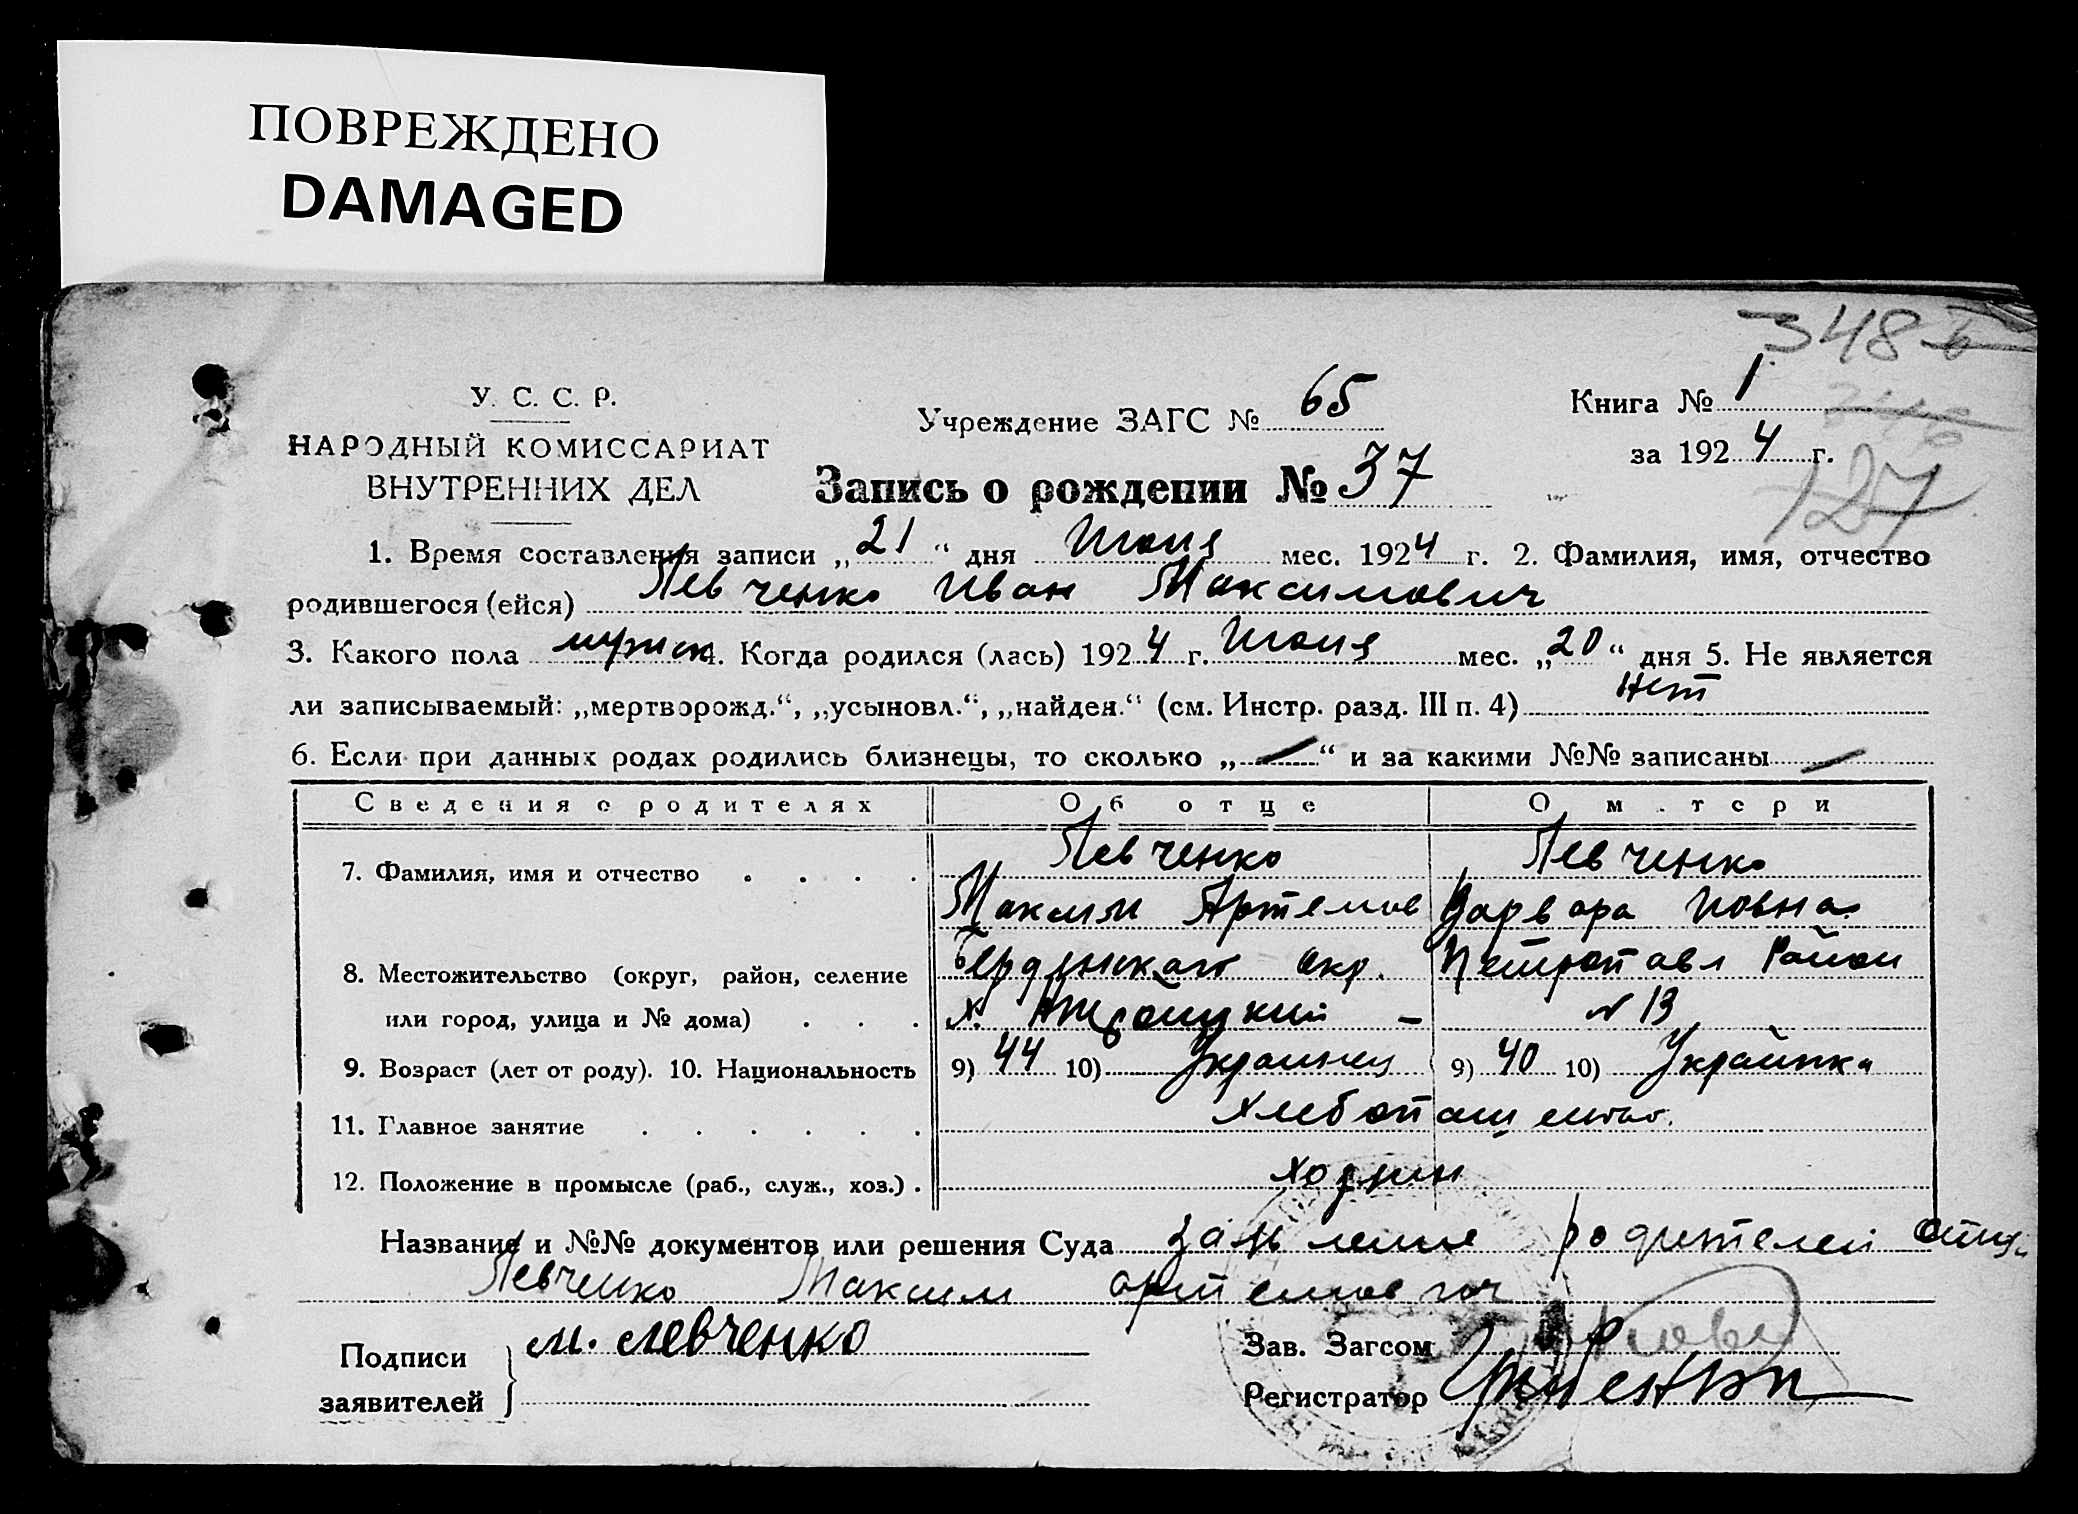 ПОВРЕЖДЕНО
DAMAGED
348
У. С. С. Р.
НАРОДНЫЙ КОМИССАРИАТ
ВНУТРЕННИХ ДЕЛ
Учреждение ЗАГС № 65
Книга № 1
за 1924 г.
127
Запись о рождении № 37
1. Время составления записи „21“ дня Июня мес. 1924 г. 2. Фамилия, имя, отчество
родившегося (ейся) Левченко Иван Максимович
3. Какого пола мужск 4. Когда родился (лась) 1924 г. Июня мес. „20“ дня 5. Не является
ли записываемый: „мертворожд.“, „усыновл.“, „найден.“ (см. Инстр. разд. III п. 4) нет
6. Если при данных родах родились близнецы, то сколько „—“ и за какими №№ записаны —
Сведения о родителях Об отце О м тери
7. Фамилия, имя и отчество . . . . Левченко Левченко
Максим Артемов Варвара Иовна
8. Местожительство (округ, район, селение Бердянская окр. Петропавл Район
или город, улица и № дома) . . . х. – № 13
9. Возраст (лет от роду). 10. Национальность 9) 44 10) Украинец 9) 40 10) Украинка
11. Главное занятие . . . . . . Хлебопашество.
12. Положение в промысле (раб., служ., хоз.) . хозяин
Название и №№ документов или решения Суда родителей отца
Левченко Максим Артемович
Подписи заявителей } М. Левченко
Зав. Загсом
Регистратор